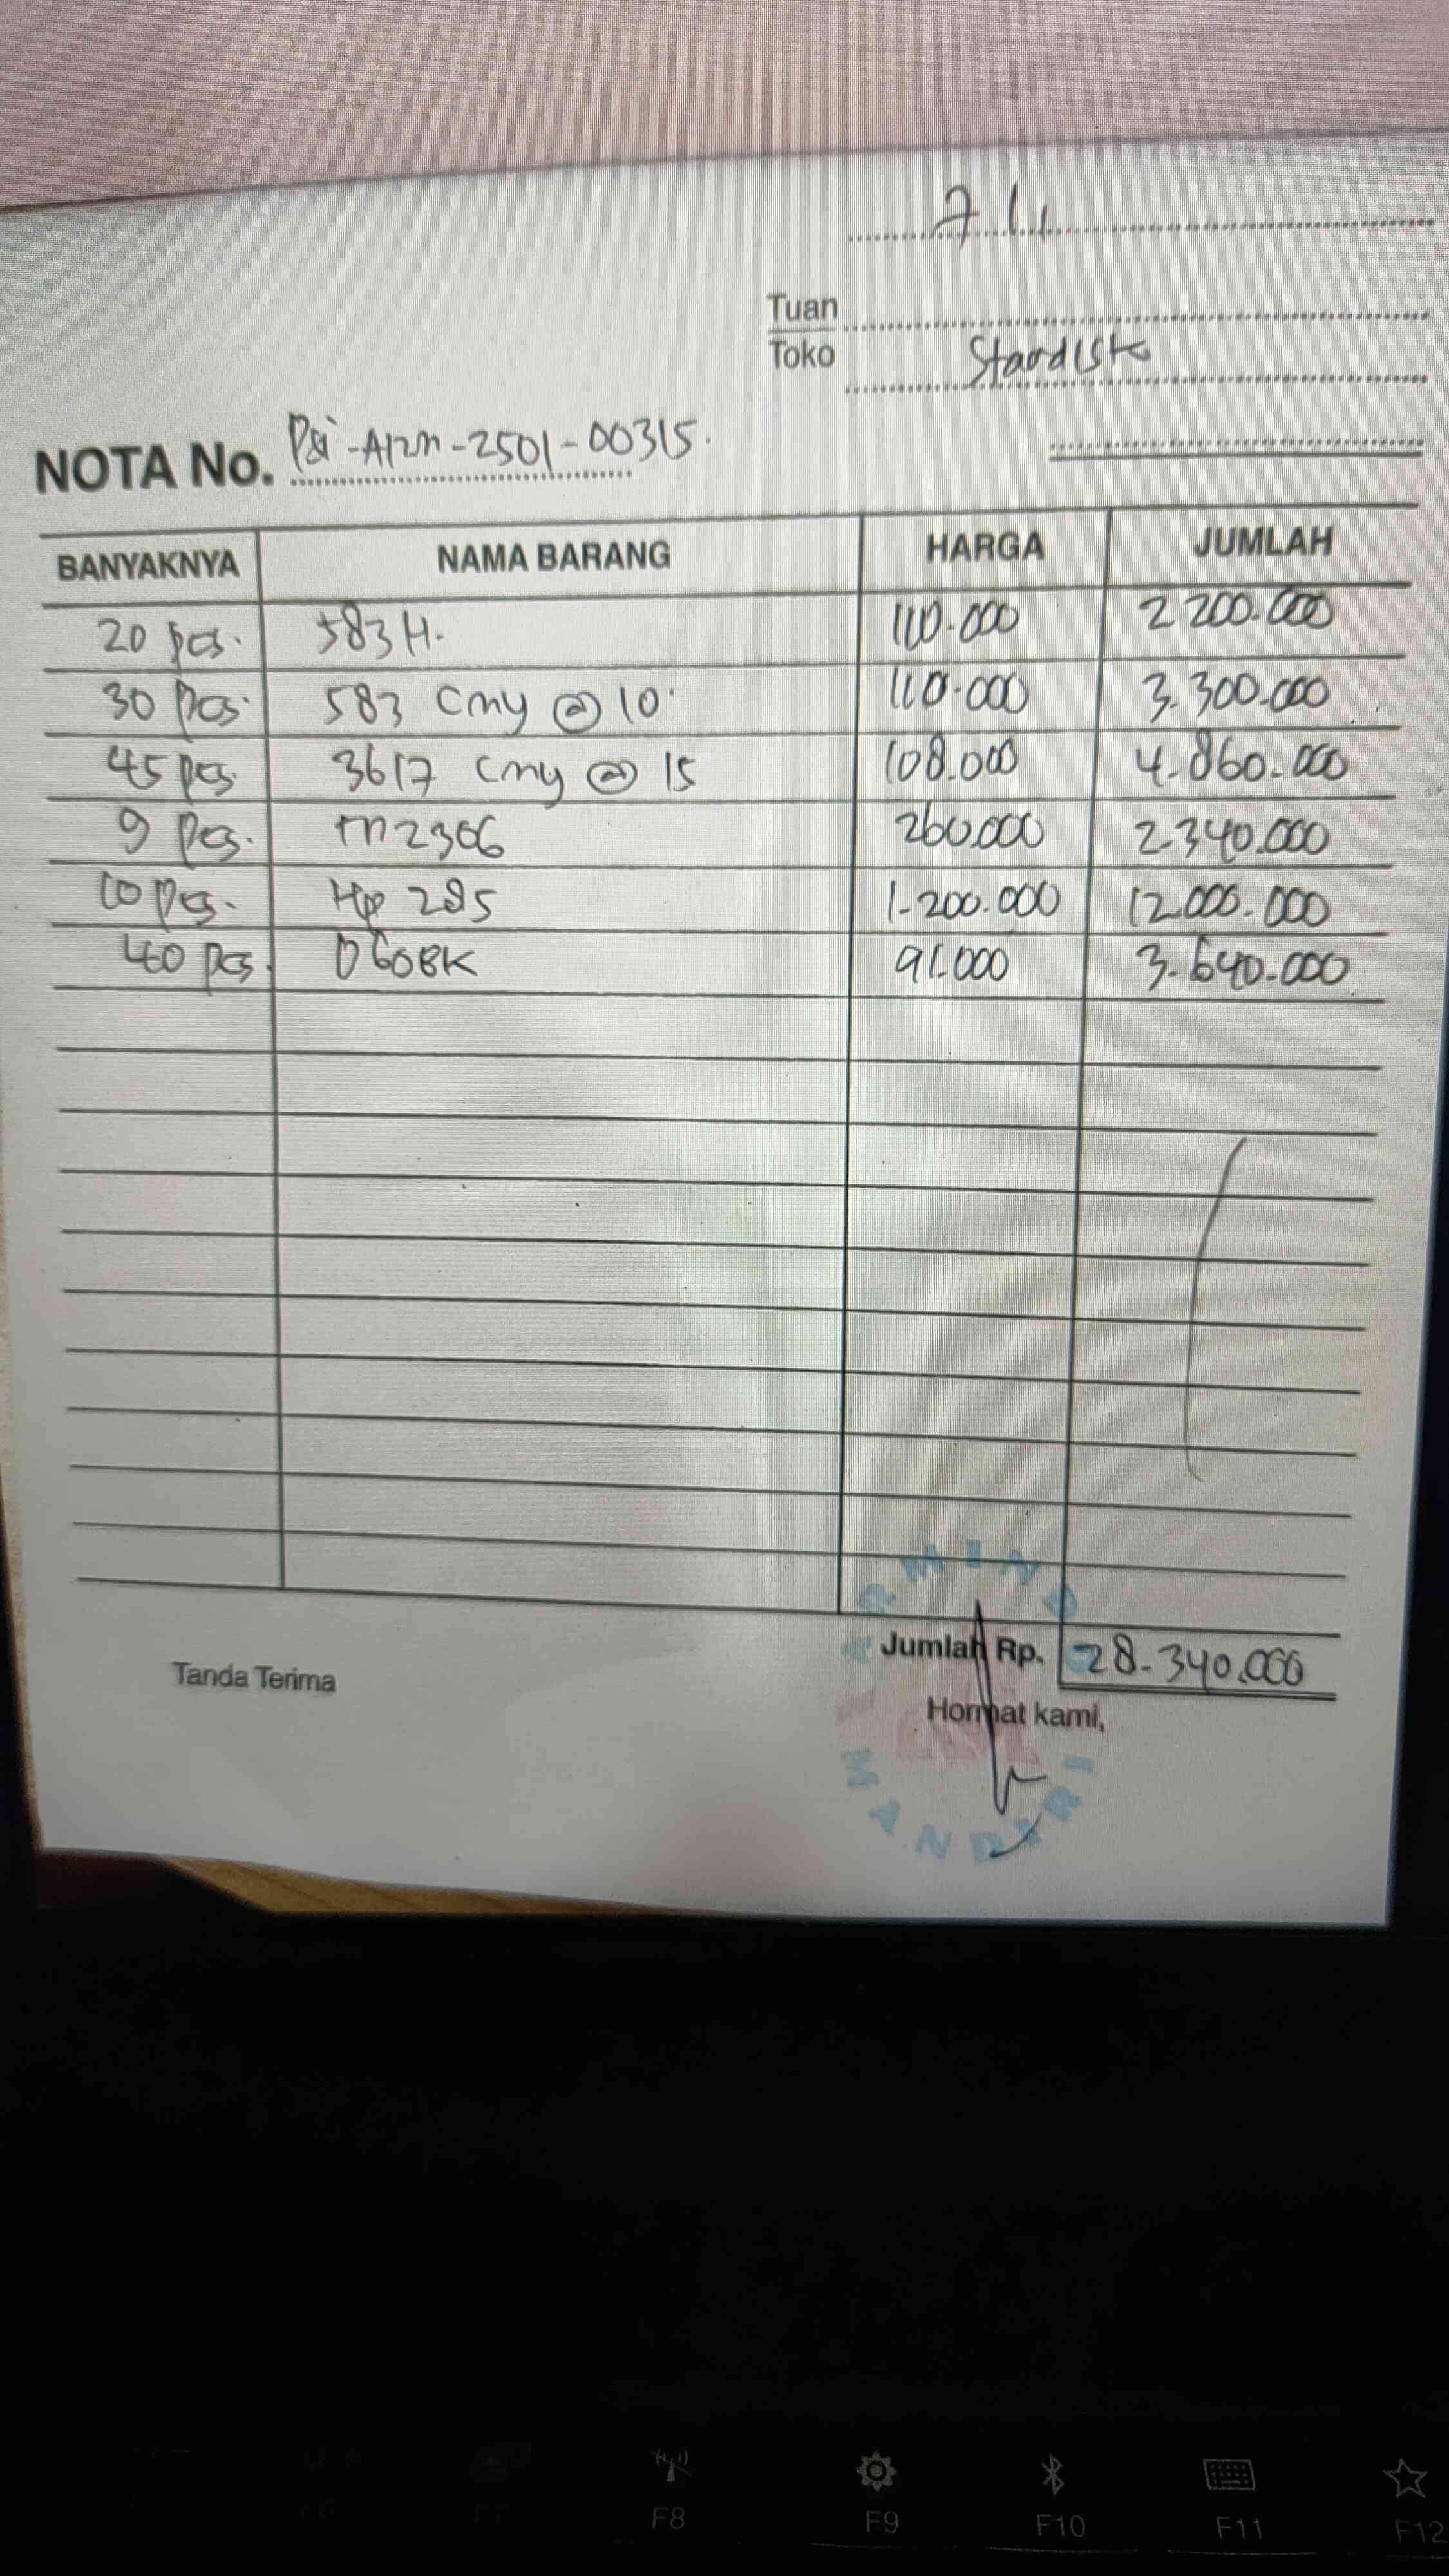 7/1
Tuan
Toko Stardisk
NOTA No. Psi-Arm-2501-00315.
BANYAKNYA NAMA BARANG HARGA JUMLAH
20 pcs. 583 H. 110.000 2 200.000
30 pcs. 583 Cmy @ 10 110.000 3.300.000
45 pcs. 3617 Cmy @ 15 108.000 4.860.000
9 pcs. m2306 260.000 2340.000
10 pcs. Hp 285 1.200.000 12.000.000
40 pcs. D60BK 91.000 3.640.000
ARMINDO
Jumlah Rp. 28.340.000
Tanda Terima
Hormat kami,
MANDIRI
F8 F9 F10 F11 F12